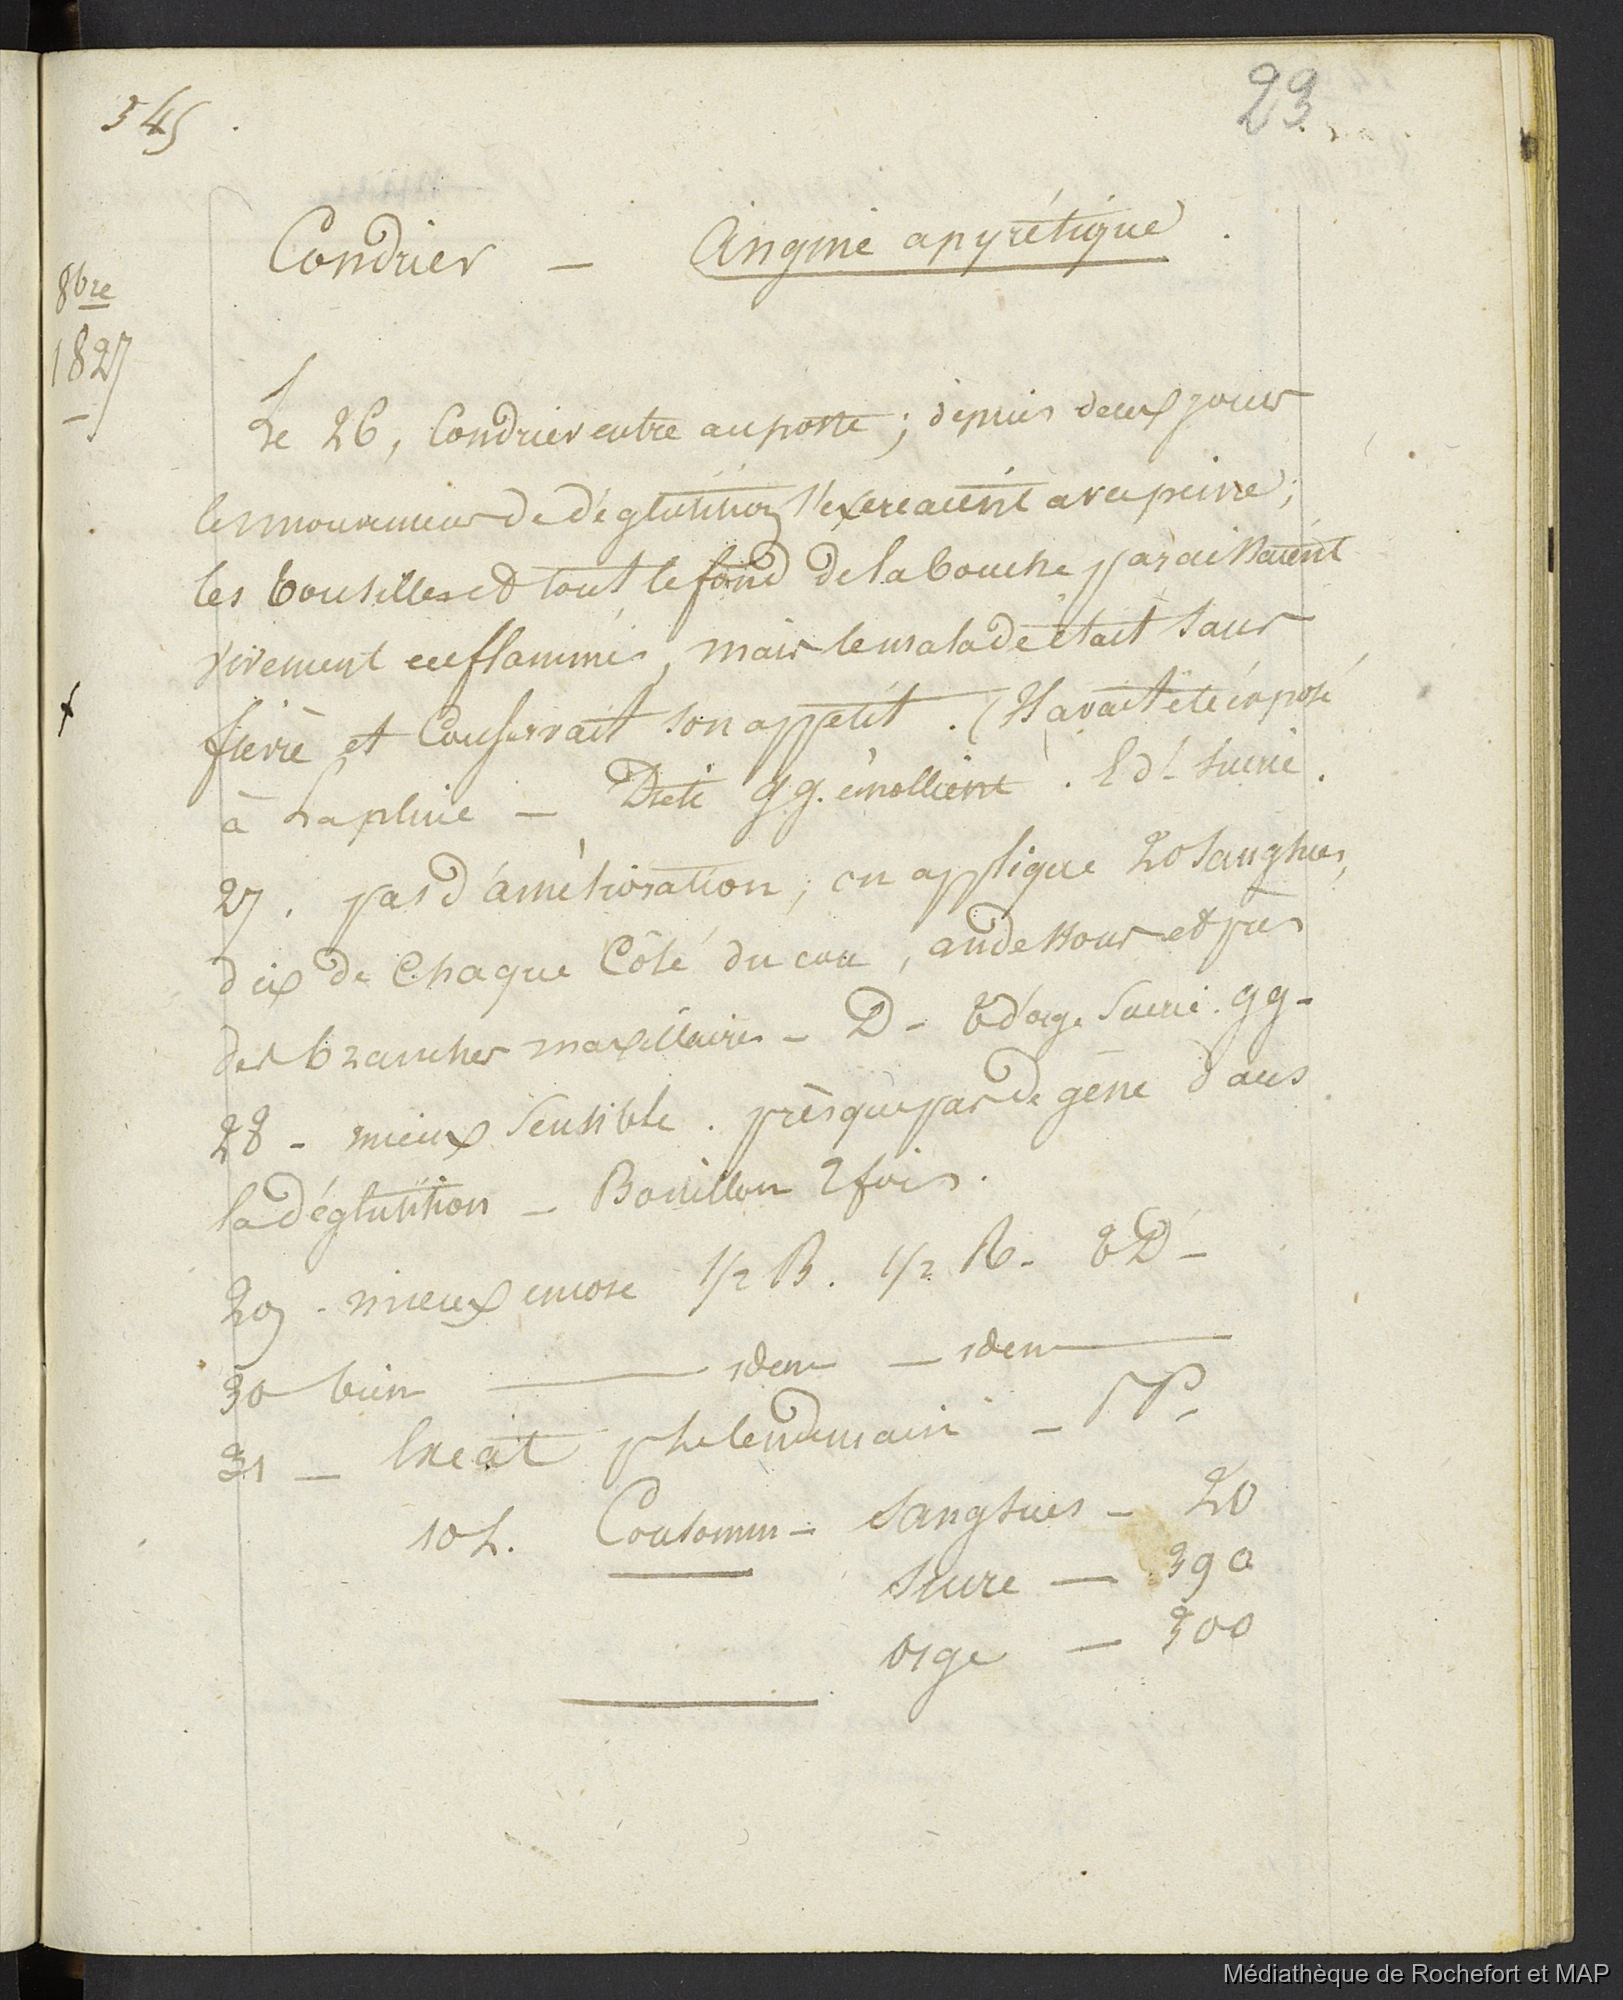 545.
23
8bre
1827
Condrier — Angine apyrétique.
Le 26, Condrier entre au poste; depuis deux jours
les mouvemens de déglutition s'exercaient avec peine;
les tonsilles et tout le fond de la bouche paraissaient
vivement enflammés, mais le malade était sans
fièvre et conservait son appetit. (Il avait été exposé
à la pluie — Diete gg. émollient. Ed. sucrie.
27. pas d'amélioration; on applique 20 sangsues,
dix de chaque Côté du cou, au dessous et près
des branches maxillaires - D - t d'orge sucrié. gg-
28 - mieux sensible. presque pas de gêne dans
la déglutition — Bouillon 2 fois.
29. mieux encore 1/2 B. 1/2 R. tD-
30 bien — idem — idem —
31 — Exeat le lendemain —
10 h. Consomm — Sangsues — 20
sucre — 390
orge — 300
Médiathèque de Rochefort et MAP